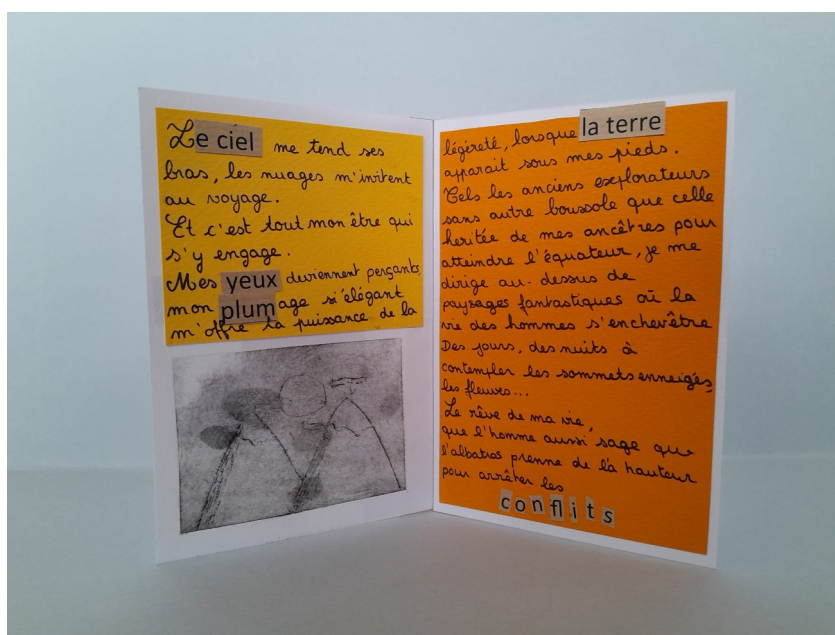 Le ciel me tend ses
bras, les nuages m'invitent
au voyage.
Et c'est tout mon être qui
s'y engage.
Mes yeux deviennent perçants,
mon plumage si élégant
m'offre la puissance de la
légèreté, lorsque la terre
apparait sous mes pieds.
Tels les anciens explorateurs
sans autre boussole que celle
heritée de mes ancêtres pour
atteindre l'équateur, je me
dirige au-dessus de
paysages fantastiques où la
vie des hommes s'enchevêtre
Des jours, des nuits à
contempler les sommets enneigés,
les fleuves...
Le rêve de ma vie,
que l'homme aussi sage que
l'albatros prenne de la hauteur
pour arrêter les
conflits